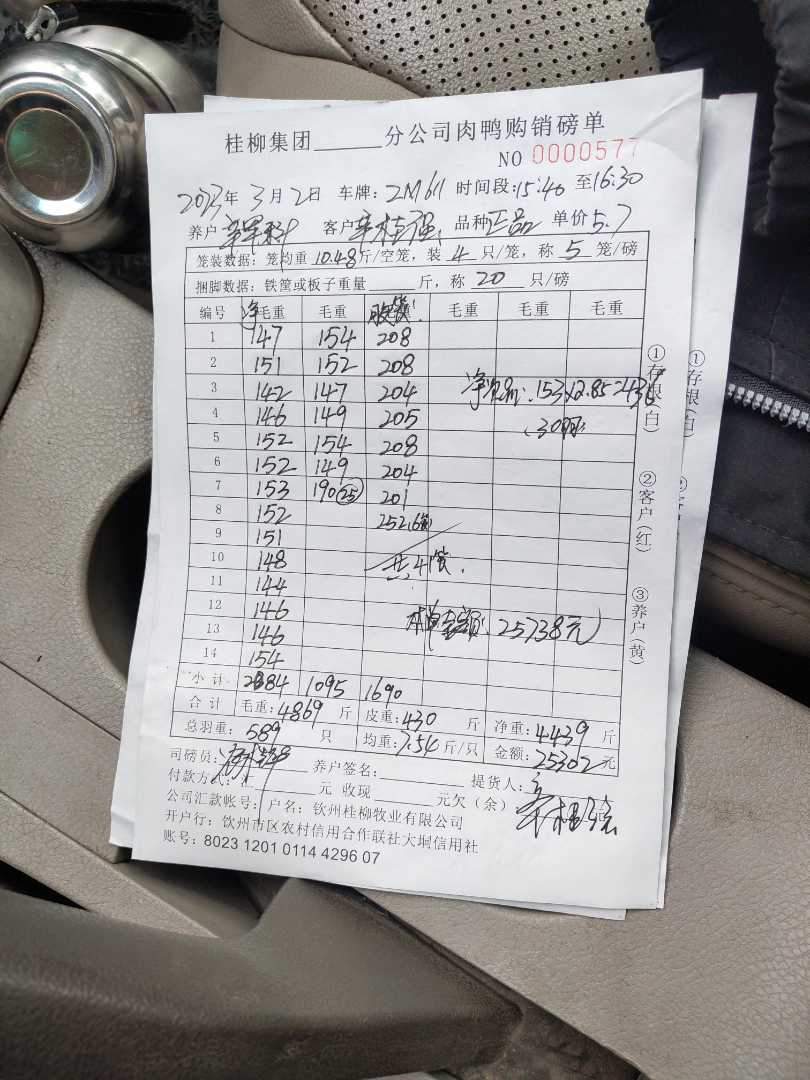 桂柳集团______分公司肉鸭购销磅单
NO 0000577
2023年 3月2日 车牌: 2M61 时间段:15:40 至16:30
养户 客户 品种 正品 单价 5.7
笼装数据: 笼均重 10.48斤/空笼, 装 4 只/笼, 称 5 笼/磅
捆脚数据: 铁筐或板子重量______斤, 称 20 只/磅
编号 净毛重 毛重 毛重 毛重 毛重
1 147 154 208
2 151 152 208
3 142 147 204 153×2.85=436
4 146 149 205
5 152 154 208
6 152 149 204
7 153 190(25) 201
8 152 252
9 151
10 148 共41笼
11 144
12 146
13 146 25738元
14 154
小计 2084 1095 1690
合计 毛重:4869斤 皮重:430斤 净重:4439斤
总羽重: 589 只 均重:7.54斤/只 金额:25302元
司磅员: 养户签名: 提货人:
付款方式:汇______元 收现______元欠(余)
公司汇款帐号: 户名: 钦州桂柳牧业有限公司
开户行: 钦州市区农村信用合作联社大垌信用社
账号: 8023 1201 0114 4296 07
①存根(白)
②客户(红)
③养户(黄)
①存根(白)